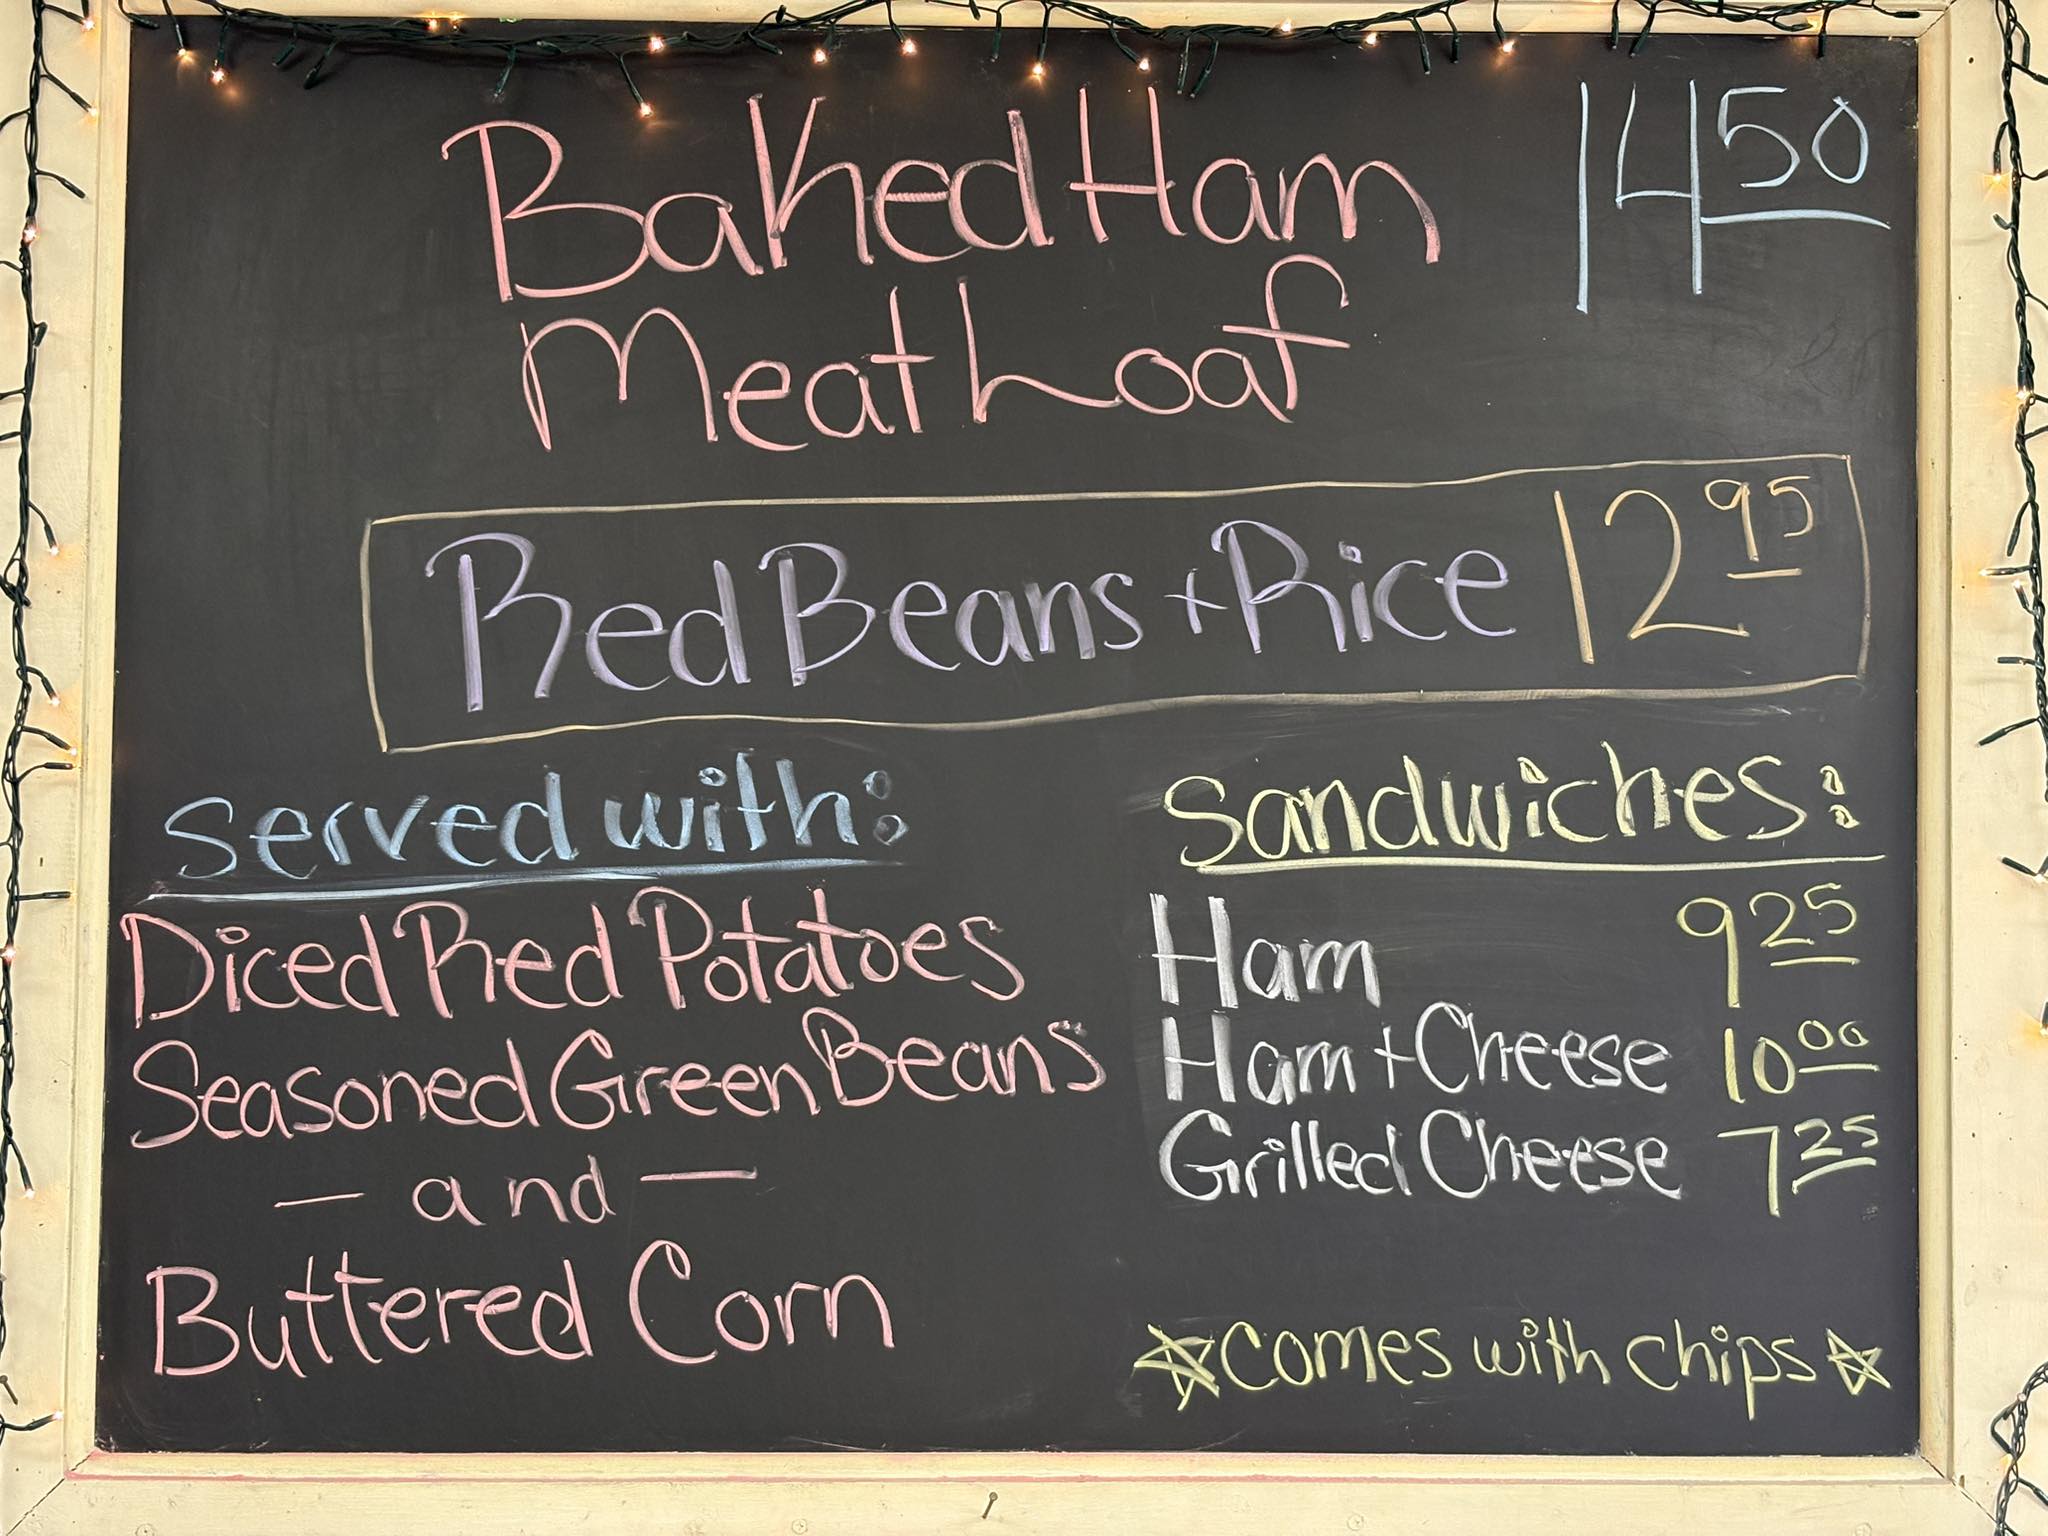 Baked Ham 14 50
Meat Loaf
Red Beans + Rice 12 95
Served with:
Diced Red Potatoes
Seasoned Green Beans
— and —
Buttered Corn
Sandwiches:
Ham 9 25
Ham + Cheese 10 00
Grilled Cheese 7 25
☆ Comes with chips ☆